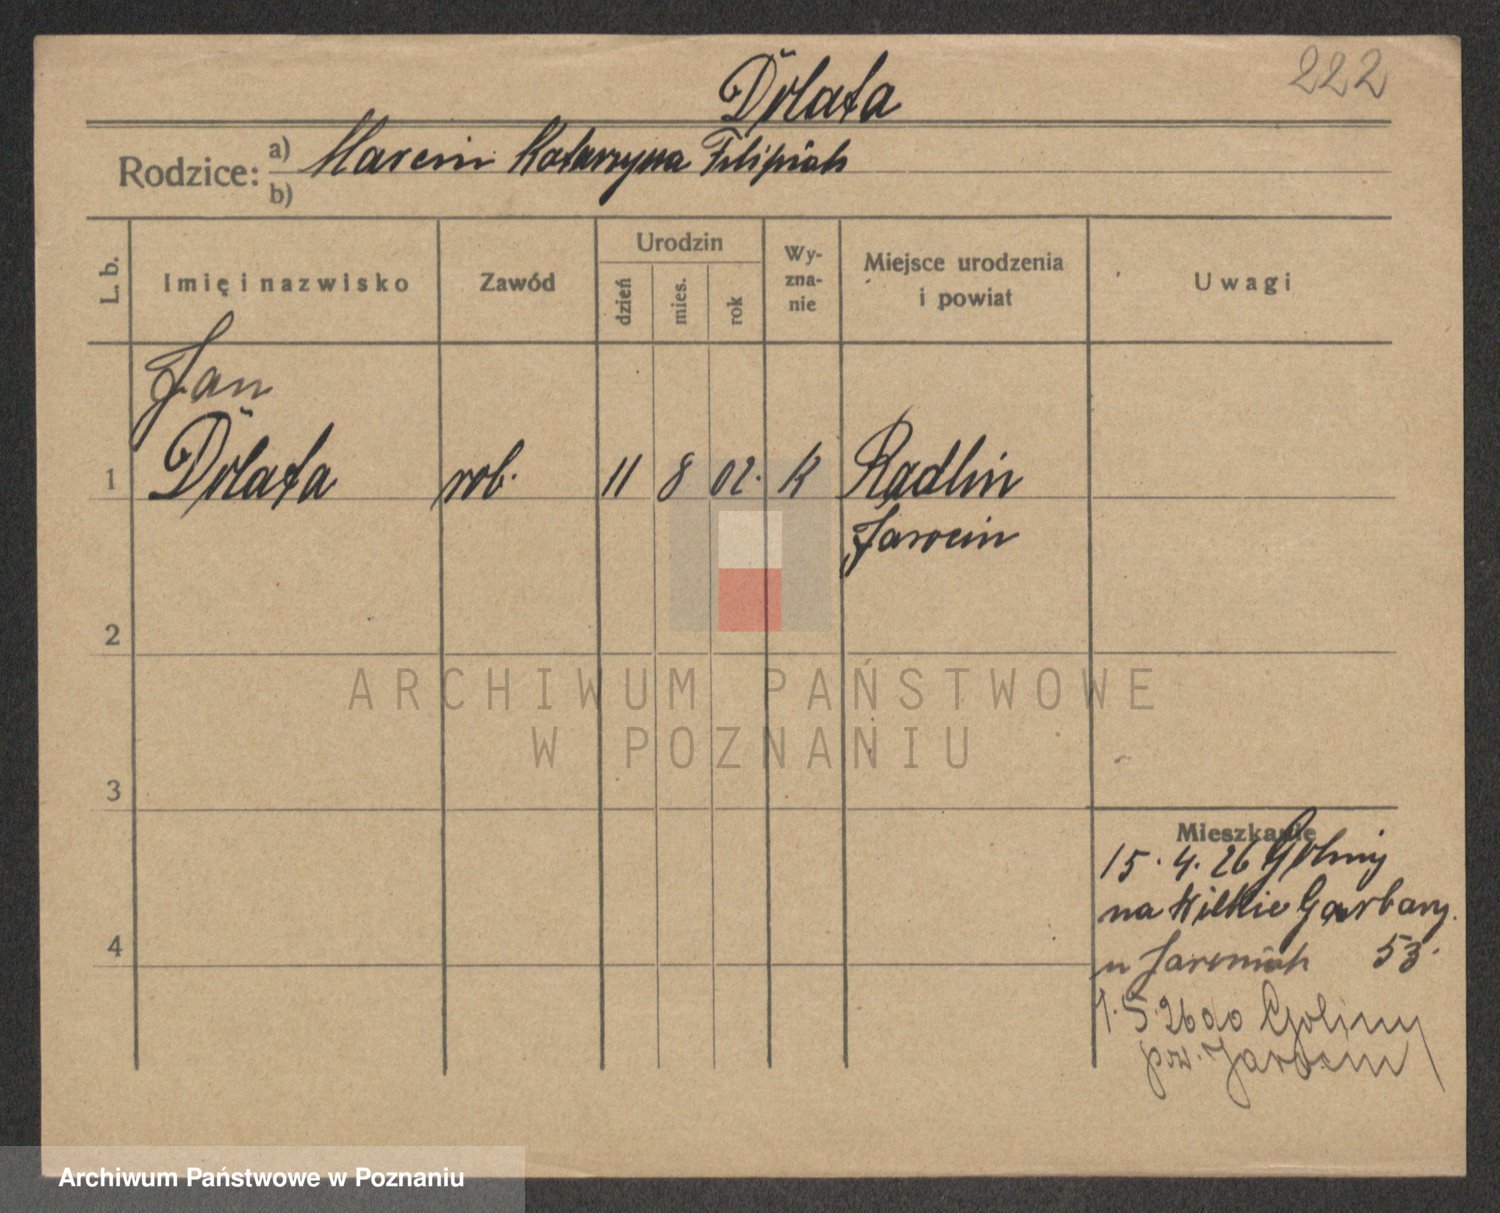 222
Dolata
Rodzice: a) Marcin Katarzyna Filipiak
b)
L. b.
Imię i nazwisko
Zawód
Urodzin
dzień
mies.
rok
Wy-
zna-
nie
Miejsce urodzenia
i powiat
Uwagi
Jan
1 Dolata rob. 11 8 02. K Radlin
Jarocin
2
ARCHIWUM PAŃSTWOWE
W POZNANIU
3
Mieszkanie
15.4.26 Goliny
na Wielkie Garbary.
4
u 53.
1.5.26 do Goliny
pow. Jarocin
Archiwum Państwowe w Poznaniu